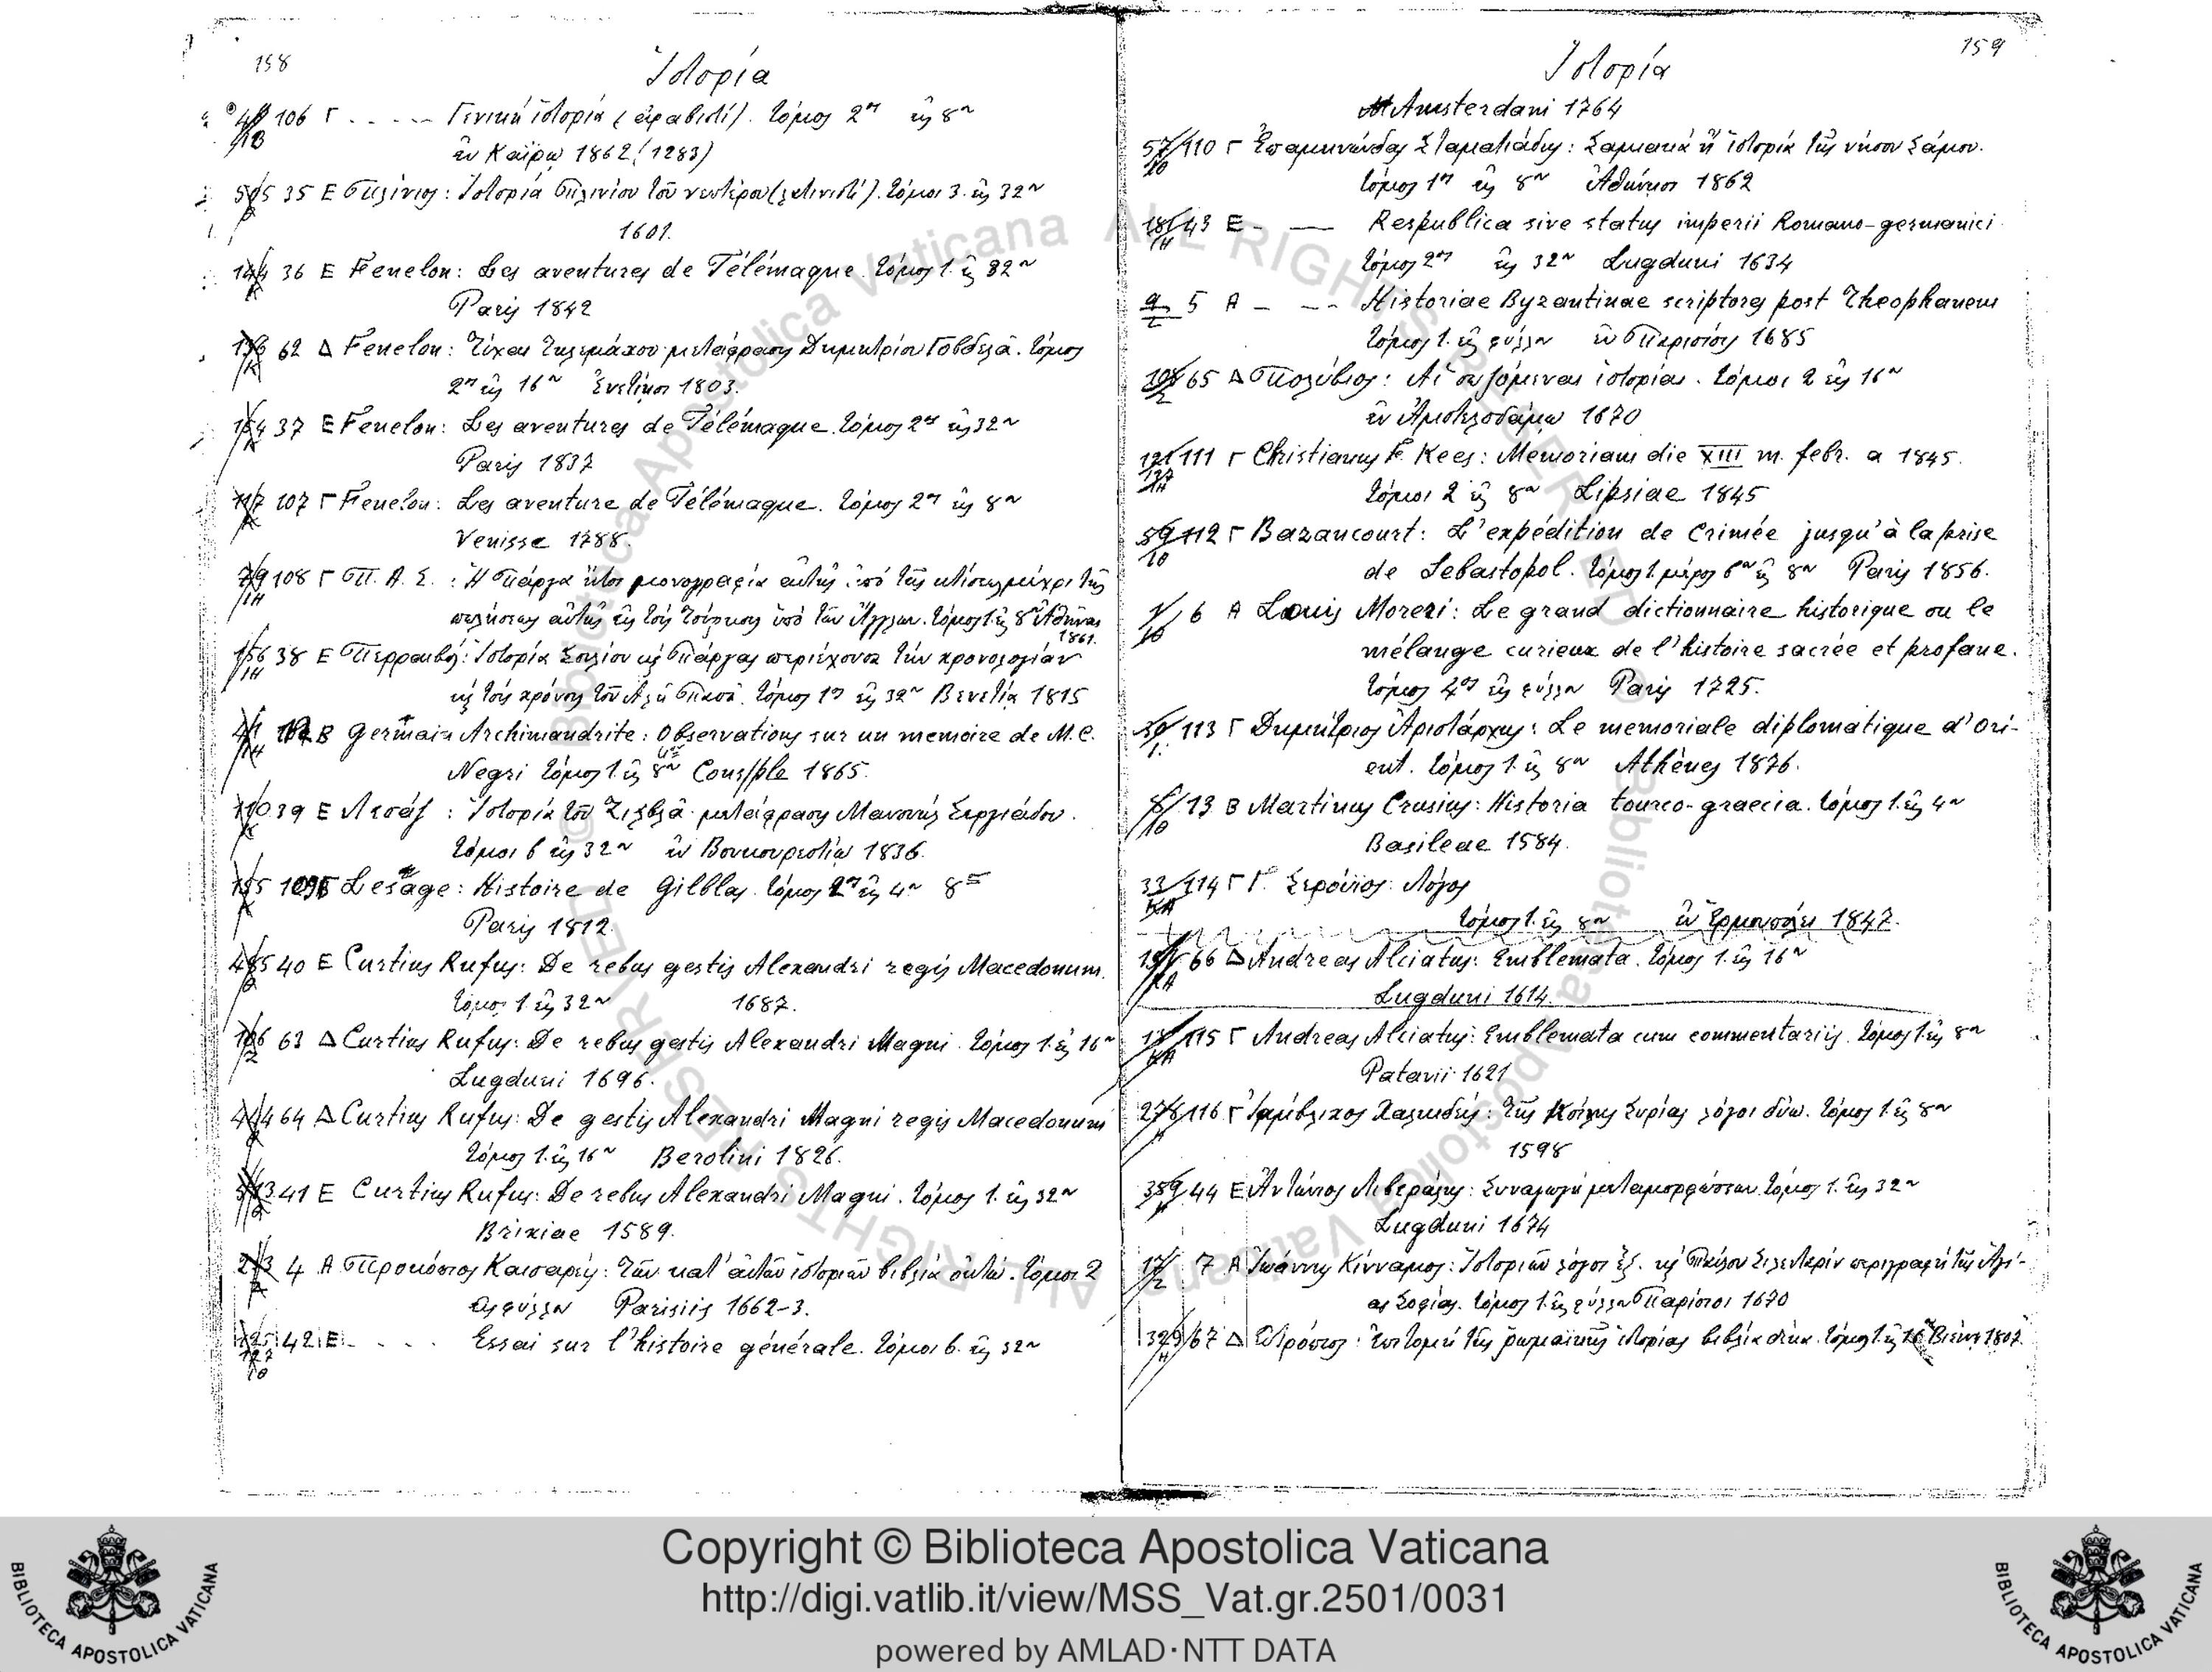 158
Ἱστορία
106 Γ . . . . Γενικὴ ἱστορία (ἀραβιστί). τόμος 2ος εἰς 8ον
ἐν Καΐρῳ 1862 (1283)
35 Ε Πλίνιος: Ἱστορία Πλινίου τοῦ νεωτέρου (λατινιστί). τόμοι 3. εἰς 32ον
1601.
36 Ε Fenelon: Les aventures de Télémaque. τόμος 1. εἰς 32ον
Paris 1842
62 Δ Fenelon: Τύχαι Τηλεμάχου μετάφρασις Δημητρίου Γοβδελᾶ. τόμος
2ος εἰς 16ον Ἐνετίησι 1803.
37 Ε Fenelon: Les aventures de Télémaque. τόμος 2ος εἰς 32ον
Paris 1837
107 Γ Fenelon: Les aventure de Télémaque. τόμος 2ος εἰς 8ον
Venisse 1788.
108 Γ Π. Α. Σ. : Ἡ Πάργα ἤτοι μονογραφία αὐτῆς ἀπὸ τῆς κτίσεως μέχρι τῆς
πωλήσεως αὐτῆς εἰς τοὺς Τούρκους ὑπὸ τῶν Ἄγγλων. τόμος 1. εἰς 8ον Ἀθῆναι
1861.
38 Ε Περραιβός: Ἱστορία Σουλίου καὶ Πάργας περιέχουσα τὴν χρονολογίαν
καὶ τοὺς χρόνους τοῦ Ἀλῆ Πασᾶ. τόμος 1ος εἰς 32ον Βενετία 1815
12 Β Germain Archimandrite: Observations sur un memoire de M. C.
Negri τόμος 1. εἰς 8ον Cons/ple 1865.
39 Ε Λεσάζ : Ἱστορία τοῦ Ζιλβλᾶ μετάφρασις Μανουὴλ Σεργιάδου.
τόμοι 6 εἰς 32ον ἐν Βουκουρεστίῳ 1836.
109 Γ Lesage: Histoire de Gilblas. τόμος 2ος εἰς 4ον 8ον
Paris 1812.
40 Ε Curtius Rufus: De rebus gestis Alexandri regis Macedonum.
τόμος 1. εἰς 32ον 1687.
63 Δ Curtius Rufus: De rebus gestis Alexandri Magni. τόμος 1. εἰς 16ον
Lugduni 1696.
64 Δ Curtius Rufus: De gestis Alexandri Magni regis Macedonum
τόμος 1. εἰς 16ον Berolini 1826.
41 Ε Curtius Rufus: De rebus Alexandri Magni. τόμος 1. εἰς 32ον
Brixiae 1589.
4 Α Προκόπιος Καισαρεύς: Τῶν κατ' αὐτὸν ἱστοριῶν βιβλία ὀκτώ. τόμοι 2
εἰς φύλλον Parisiis 1662-3.
42 Ε . . . Essai sur l'histoire générale. τόμοι 6. εἰς 32ον
159
Ἱστορία
Amsterdani 1764
57/10 110 Γ Ἐπαμηνώνδας Σταματιάδης: Σαμιακὰ ἢ ἱστορία τῆς νήσου Σάμου.
τόμος 1ος εἰς 8ον Ἀθήνησι 1862
43 Ε - — Respublica sive status imperii Romano-germanici
τόμος 2ος εἰς 32ον Lugduni 1634
5 Α - — Historiae Byzantinae scriptores post Theophanem
τόμος 1. εἰς φύλλον ἐν Παρισίοις 1685
65 Δ Πολύβιος: Αἱ σωζόμεναι ἱστορίαι. τόμοι 2 εἰς 16ον
ἐν Ἀμστελοδάμῳ 1670
111 Γ Christianus F. Kees: Memoriam die XIII m. febr. a 1845.
τόμοι 2 εἰς 8ον Lipsiae 1845
59/10 112 Γ Bazancourt: L'expédition de Crimée jusqu'à la prise
de Sebastopol. τόμος 1. μέρος 6ον εἰς 8ον Paris 1856.
1/10 6 Α Louis Moreri: Le grand dictionnaire historique ou le
mélange curieux de l'histoire sacrée et profane.
τόμος 4ος εἰς φύλλον Paris 1725.
113 Γ Δημήτριος Ἀριστάρχης: Le memoriale diplomatique d'ori-
ent. τόμος 1. εἰς 8ον Athènes 1876.
8/10 13 Β Martinus Crusius: Historia tourco-graecia. τόμος 1. εἰς 4ον
Basileae 1584.
33/ΚΑ 114 Γ Γ. Σερούϊος: Λόγος
τόμος 1. εἰς 8ον ἐν Ἑρμουπόλει 1847.
66 Δ Andreas Alciatus: Emblemata. τόμος 1. εἰς 16ον
Lugduni 1614.
115 Γ Andreas Alciatus: Emblemata cum commentariis. τόμος 1. εἰς 8ον
Patavii 1621
116 Γ Ἰαμβλιχος Χαλκιδεύς: τῆς Κοίλης Συρίας λόγοι δύω. τόμος 1. εἰς 8ον
1598
44 Ε Ἀντώνιος Λιβεράλης: Συναγωγὴ μεταμορφώσεων. τόμος 1. εἰς 32ον
Lugduni 1674
17/2 7 Α Ἰωάννης Κίνναμος: Ἱστοριῶν λόγοι ἕξ. καὶ Παύλου Σιλεντιαρίου περιγραφὴ τῆς Ἁγί-
ας Σοφίας. τόμος 1. εἰς φύλλον Παρίσιοι 1670
67 Δ Εὐτρόπιος: Ἐπιτομὴ τῆς ῥωμαϊκῆς ἱστορίας βιβλία δέκα. τόμος 1. εἰς 16ον Βιέννη 1807.
Copyright © Biblioteca Apostolica Vaticana
http://digi.vatlib.it/view/MSS_Vat.gr.2501/0031
powered by AMLAD·NTT DATA
BIBLIOTECA APOSTOLICA VATICANA
BIBLIOTECA APOSTOLICA VATICANA